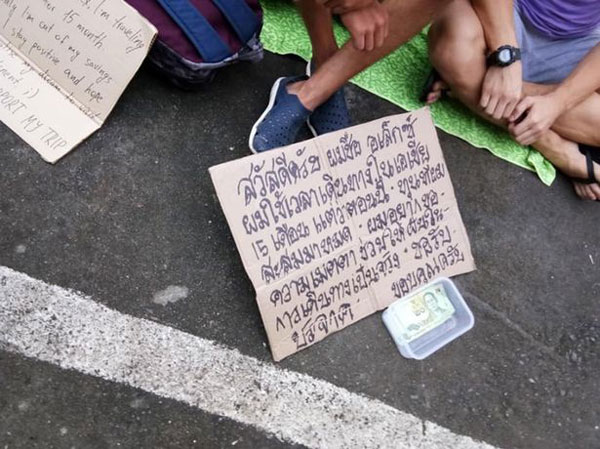 I'm traveling
15 month
I'm out of my savings
stay positive and hope
PORT MY TRIP
สวัสดีครับ ผมชื่อ อเล็กซ์
ผมใช้เวลาเดินทางในเอเชีย
15 เดือน แต่ว่าตอนนี้ ทุนที่ผม
สะสมมาหมด ผมอยากขอ
ความเมตตา ช่วยให้ฝันใน
การเดินทางเป็นจริง ขอรับ
บริจาค ขอบคุณครับ
20